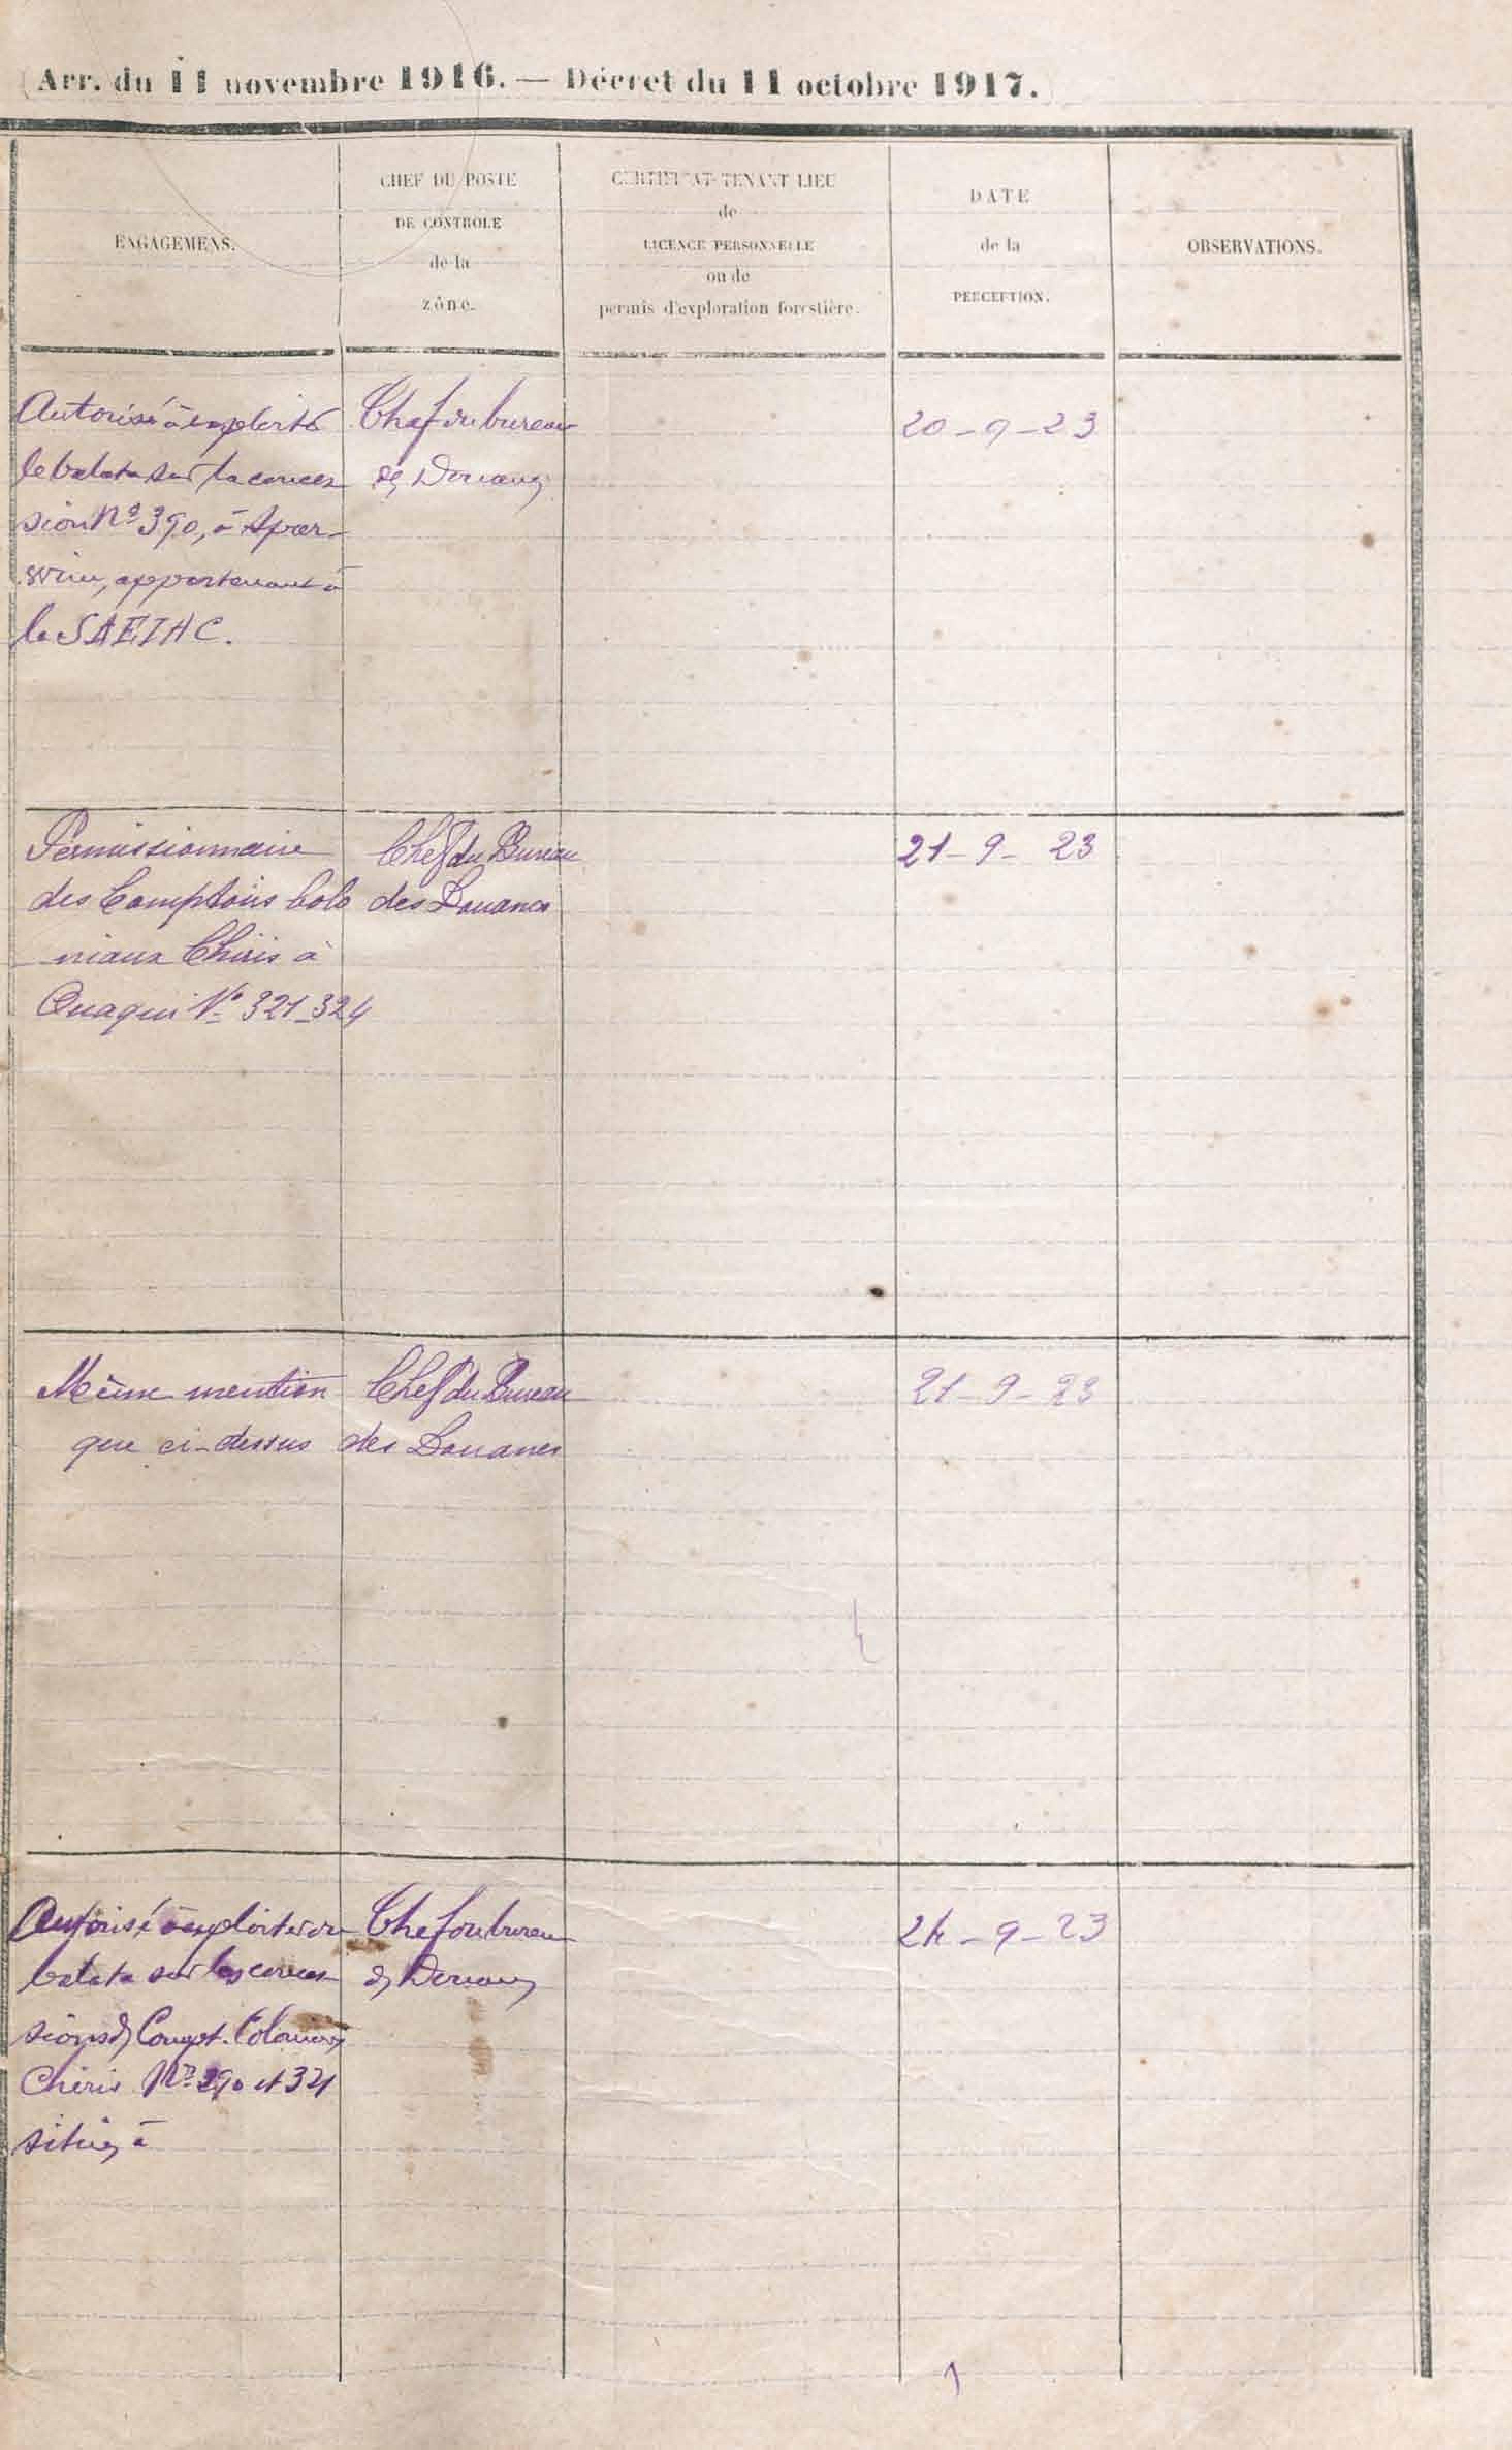 (Arr. du 11 novembre 1916. — Décret du 11 octobre 1917.)
ENGAGEMENS.
CHEF DU POSTE
DE CONTROLE
de la
zône.
CERTIFICAT TENANT LIEU
de
LICENCE PERSONNELLE
ou de
permis d'exploration forestière.
DATE
de la
PERCEPTION.
OBSERVATIONS.
Autorisé à exploiter
le balata sur la conces
sion No 390, à
appartenant à
la SAEIHC.
Chef du bureau
des Douanes
20-9-23
Permissionnaire
des Comptoirs Colo
niaux Chiris à
Ouaqui No 321-324
Chef du Bureau
des Douanes
21-9-23
Même mention
que ci-dessus
Chef du Bureau
des Douanes
21-9-23
Autorisé à exploiter du
balata sur les conces
sions des Compt. Coloniaux
Chiris Nos 390 et 321
situés à
Chef du bureau
des Douanes
24-9-23